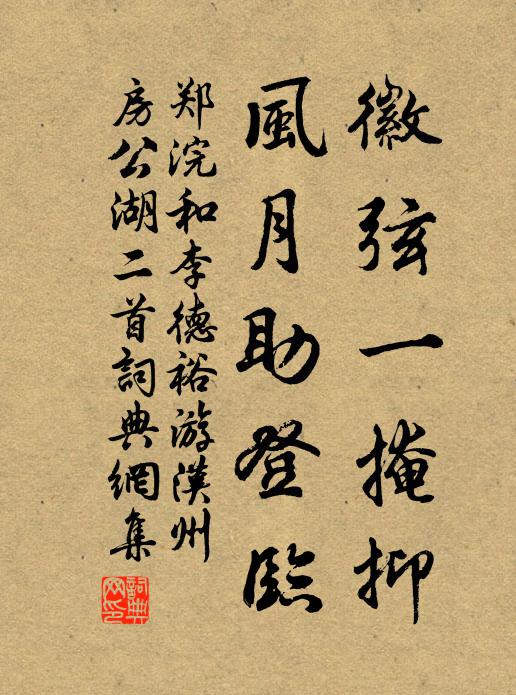 徽弦一掩抑
風月助登臨
郑浣和李德裕游漢州
房公湖二首詞典網集
詞典网印